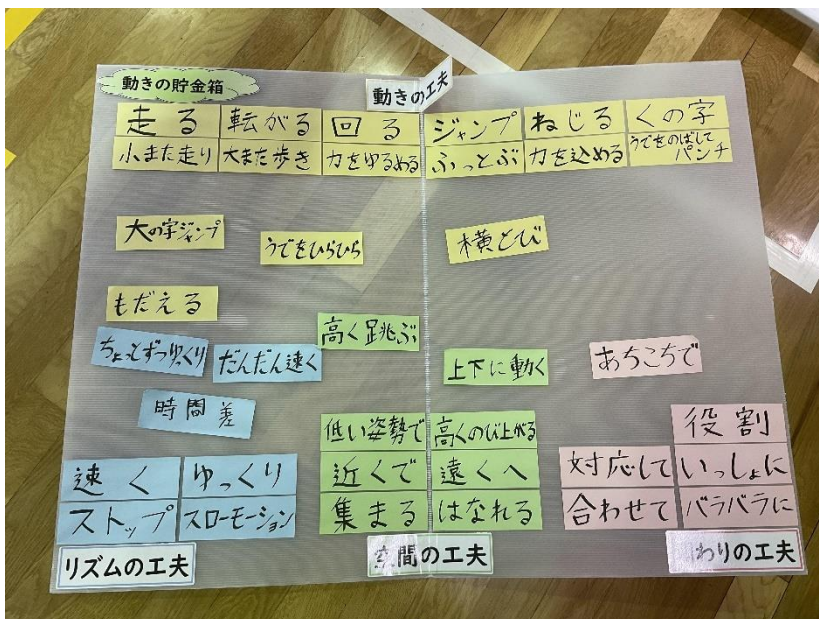 動きの貯金箱
動きの工夫
走る 転がる 回る ジャンプ ねじる くの字
小また走り 大また歩き 力をゆるめる ふっとぶ 力を込める うでをのばしてパンチ
大の字ジャンプ うでをひらひら 横とび
もだえる
高く跳ぶ
ちょっとずつゆっくり だんだん速く 上下に動く あちこちで
時間差
低い姿勢で 高くのび上がる 役割
速く ゆっくり 近くで 遠くへ 対応して いっしょに
ストップ スローモーション 集まる はなれる 合わせて バラバラに
リズムの工夫 空間の工夫 わりの工夫